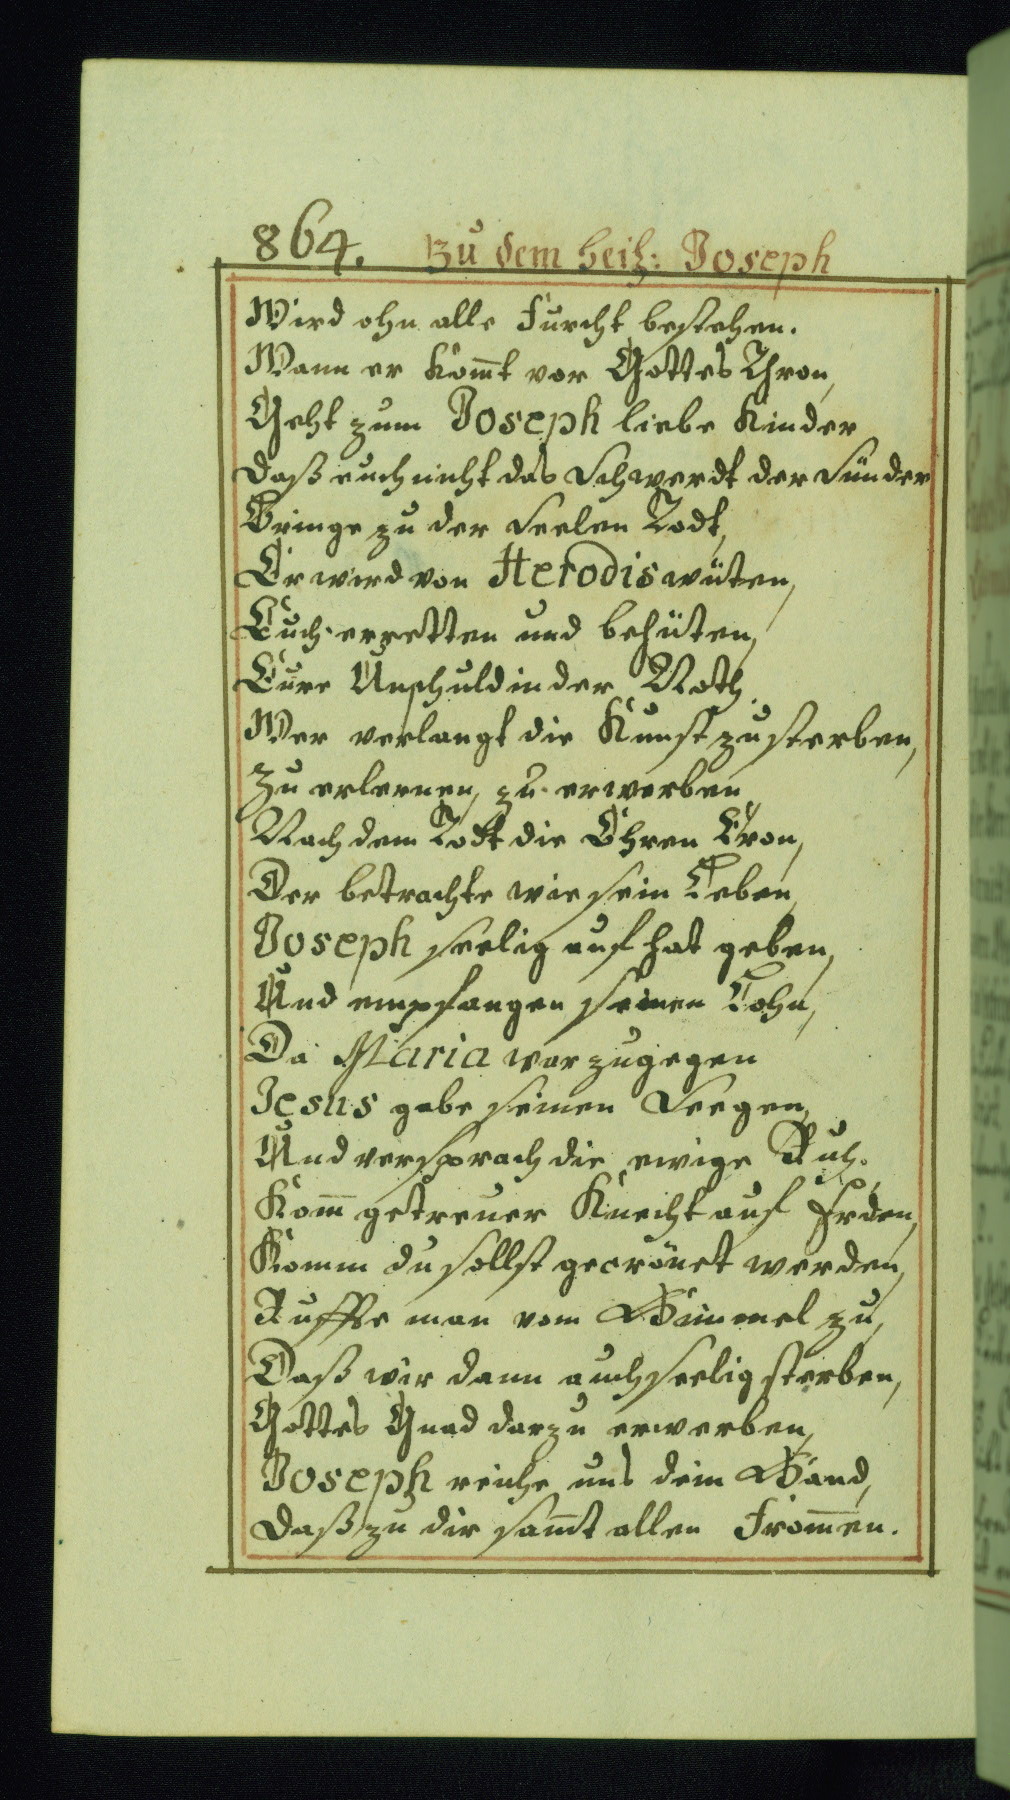 864. Zu dem heil: Joseph
Wird ohn alle Furcht bestehen.
Wann er kom̅t vor Gottes Thron,
Geht zum Joseph liebe Kinder
Daß euch nicht das Schwerdt der Sünder
Bringe zu der Seelen Todt,
Er wird von Herodis wüten,
Euch erretten und behüten,
Eure Unschuld in der Noth.
Wer verlangt die Kunst zu sterben,
Zu erlernen, zu erwerben
Nach dem Todt die Ehren Cron,
Der betrachte wie sein Leben,
Joseph seelig auf hat geben,
Und empfangen seinen Lohn,
Da Maria war zugegen
Jesus gabe seinen Seegen,
Und versprach die ewige Ruh.
Kom̅ getreuer Knecht auf Erden,
Komm du sollst gecrönet werden,
Ruffte man vom Himmel zu,
Daß wir dann auch seelig sterben,
Gottes Gnad darzu erwerben,
Joseph reiche uns dein Hand,
Daß zu dir sam̅t allen From̅en.